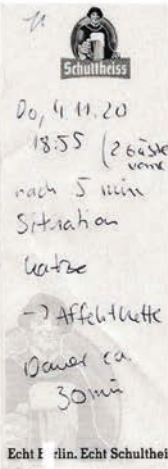 Schultheiss
Do, 4.11.20
18:55 (2 Gäste
vorne
nach 5 min
Situation
Katze
-> Affektkette
Dauer ca.
30 min
Echt Berlin. Echt Schulthei